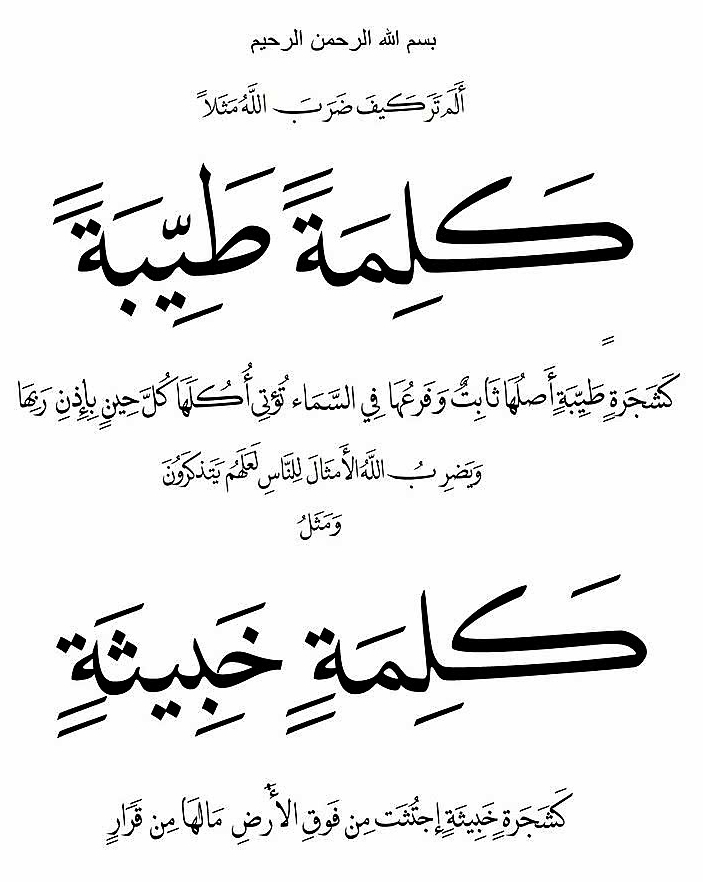 بسم الله الرحمن الرحيم
أَلَم تَرَ كَيفَ ضَرَبَ اللَّهُ مَثَلاً
كَلِمَةً طَيِّبَةً
كَشَجَرَةٍ طَيِّبَةٍ أَصلُهَا ثَابِتٌ وَفَرعُهَا فِي السَّمَاء تُؤتِي أُكُلَهَا كُلَّ حِينٍ بِإِذنِ رَبِّهَا
وَيَضرِبُ اللَّهُ الأَمثَالَ لِلنَّاسِ لَعَلَّهُم يَتَذَكَرُونَ
وَمَثَلُ
كَلِمَةٍ خَبِيثَةٍ
كَشَجَرَةٍ خَبِيثَةٍ إجتُثَت مِن فَوقِ الأَرضِ مَالَهَا مِن قَرَارٍ